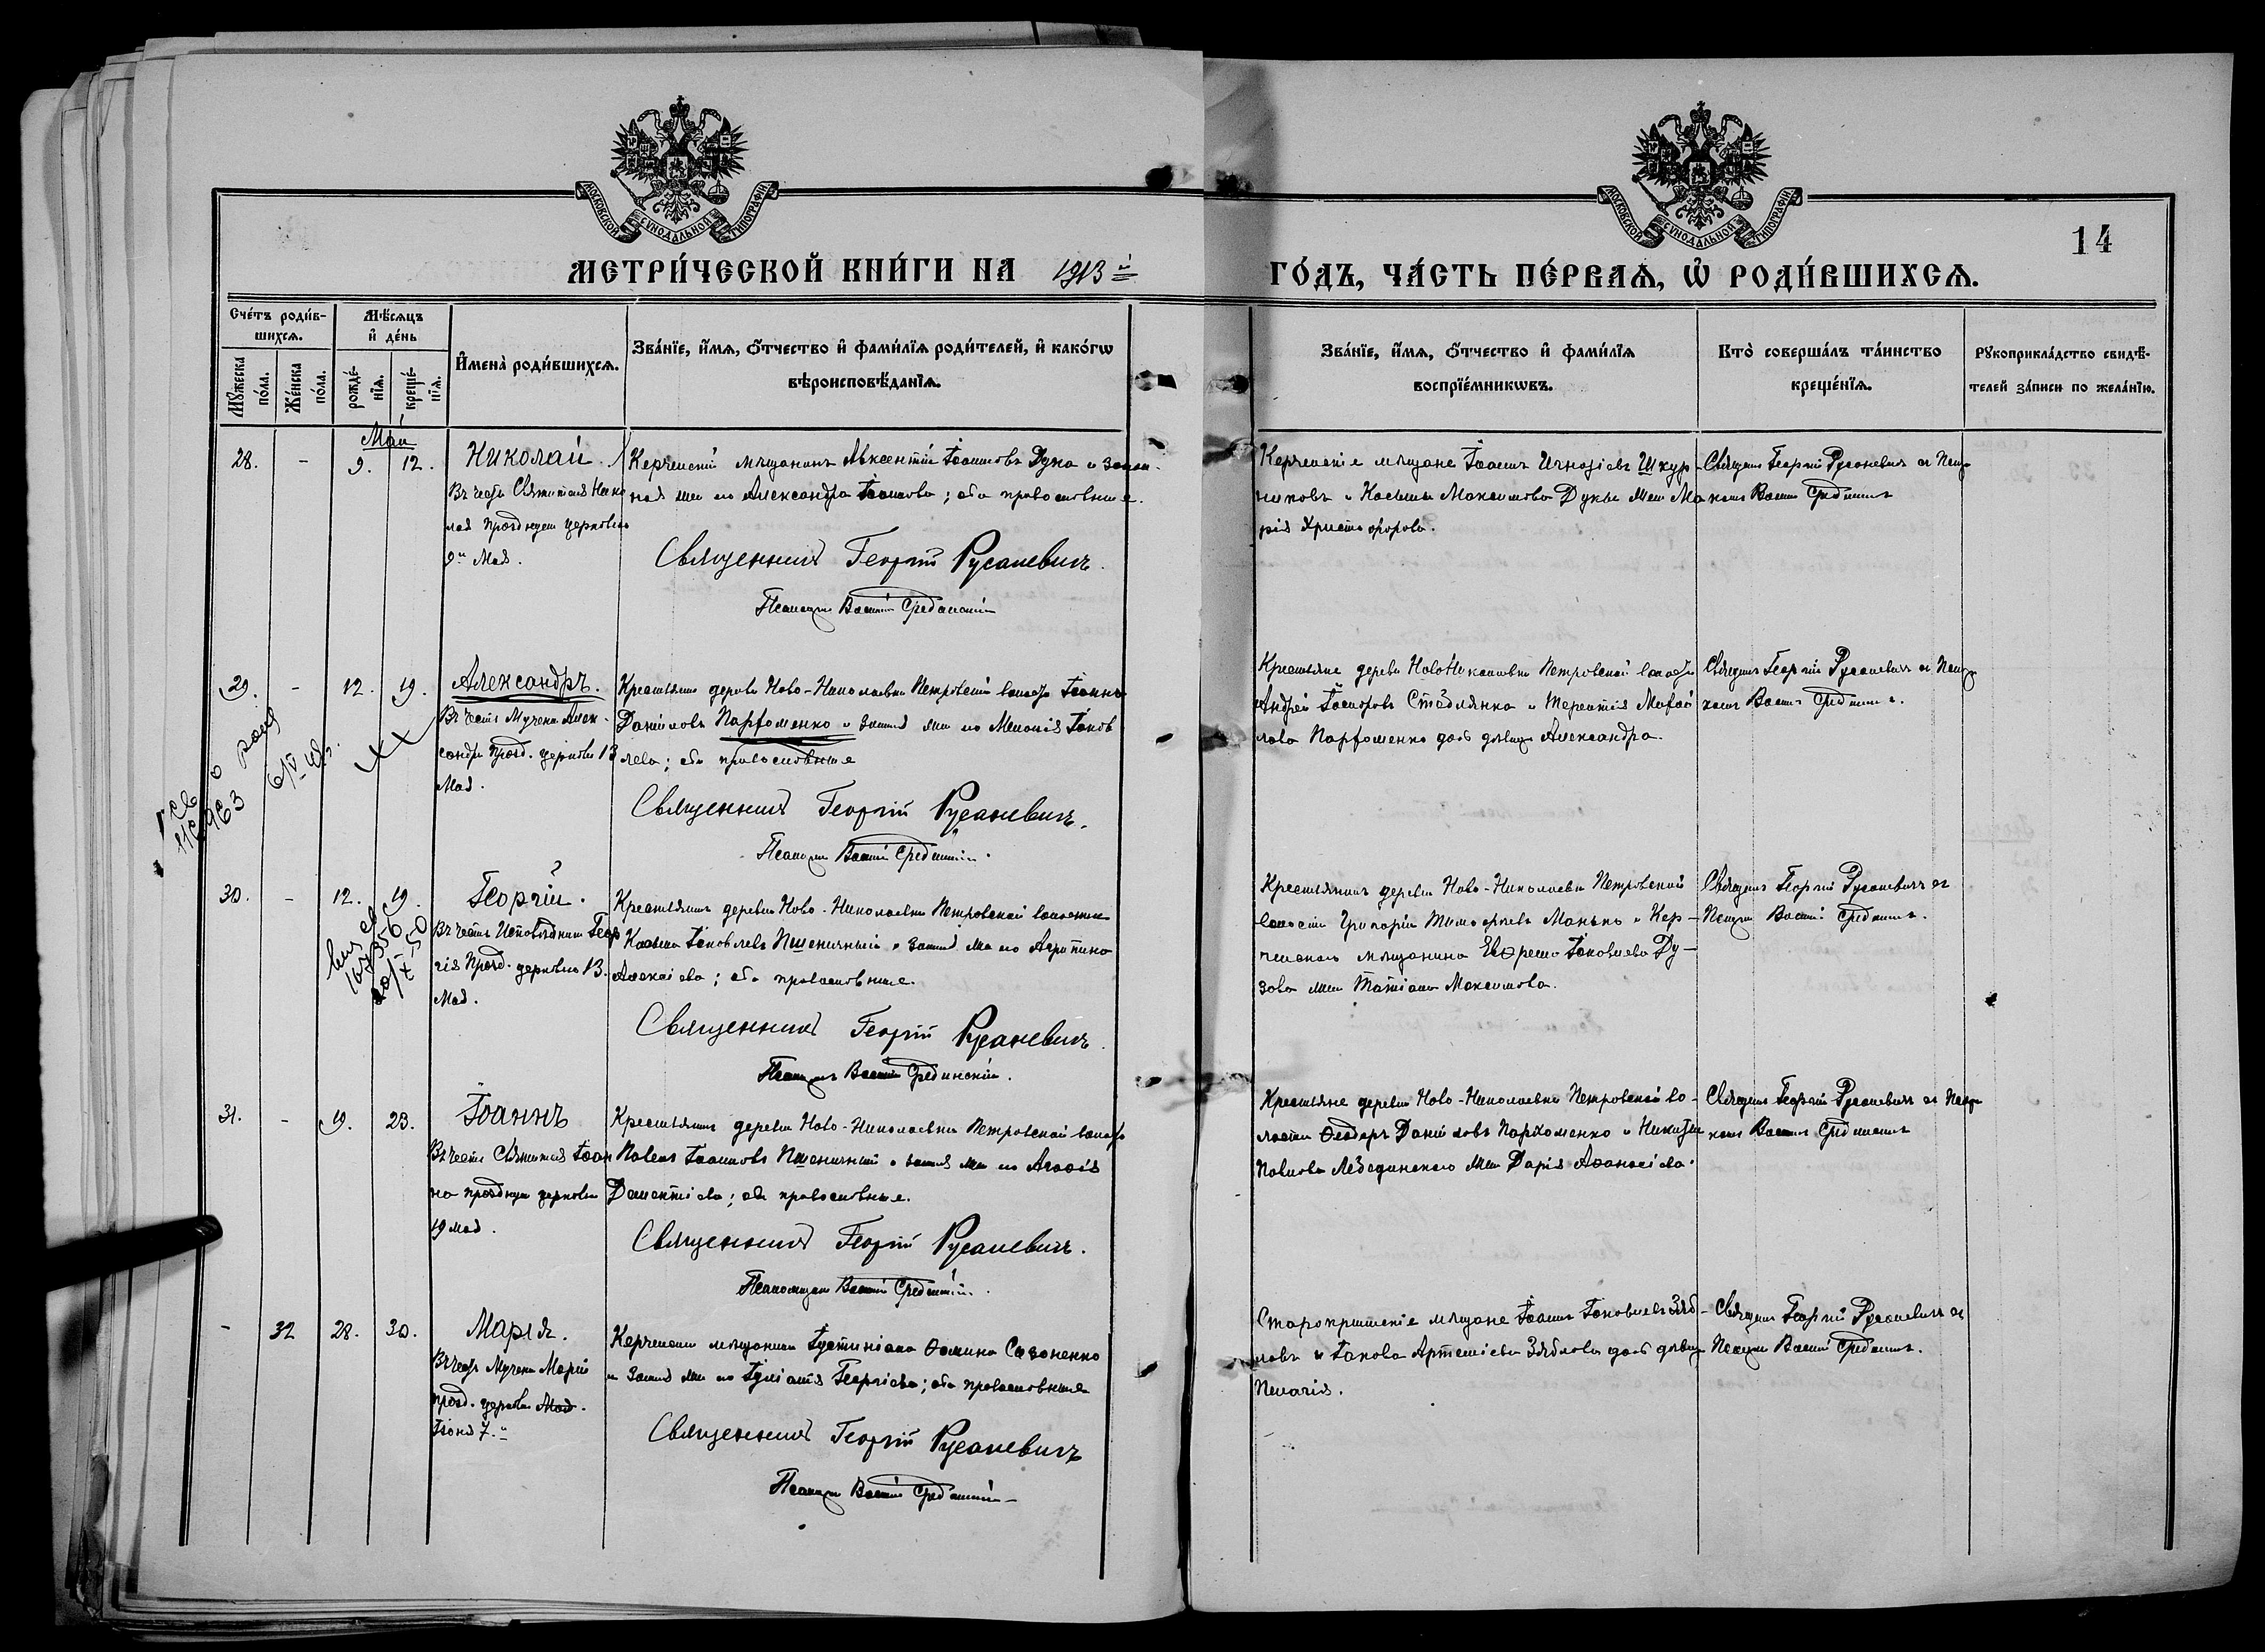 МОСКОВСКОЙ СУНОДАЛЬНОЙ ТИПОГРАФІИ
МОСКОВСКОЙ СУНОДАЛЬНОЙ ТИПОГРАФІИ
14
МЕТРИ́ЧЕСКОЙ КНИ́ГИ НА 1913й
ГО́ДЪ, ЧА́СТЬ ПЕ́РВАЯ, Ѡ҆ РОДИ́ВШИХСЯ.
Сче́тъ роди́в-
шихся.
Мѣ́сяцъ
и҆ де́нь
Мꙋ́жеска
по́ла.
Же́нска
по́ла.
рожде́-
нїя.
креще́-
нїя.
И҆мена̀ роди́вшихся.
Зва́нїе, и҆́мя, ѻ҆́тчество и҆ фами́лїя роди́телей, и҆ како́гѡ
вѣроисповѣ́данїя.
Зва́нїе, и҆́мя, ѻ҆́тчество и҆ фами́лїя
воспрїе́мникѡвъ.
Кто̀ соверша́лъ та́инство
креще́нїя.
Рꙋкоприкла́дство свидѣ́-
телей за́писи по жела́нїю.
Май
28. - 9. 12. Николай.
Въ честь Святителя Нико
лая празднуем церковью
9го Мая.
Керченскій мѣщанинъ Авксентій Іоанновъ Дука и закон-
ная жена его Александра Іоаннова; оба православные.
Священникъ Георгій Русаневичъ.
Псаломщикъ Василій Срединскій
Керченскіе мѣщане Іоаннъ Игнатіевъ Шкур-
никовъ и Космы Максимова Дуки жена Ма
рія Христофорова.
Священ. Георгій Русаневичъ съ Псалом-
щикомъ Василіемъ Срединскимъ
29. - 12. 19. Александръ.
Въ честь Мученика Алек-
сандра празд. церковью 13
Мая.
Крестьянинъ деревни Ново-Николаевки Петровской волости Іоаннъ
Даніиловъ Парфоменко и законная жена его Меланія Іаков
лева; оба православные
Священникъ Георгій Русаневичъ.
Псаломщикъ Василій Срединскій.
Крестьяне деревни Ново-Николаевки Петровской волости
Андрей Іосифовъ Стодлянко и Терентія Михаи
лова Парфоменко дочь дѣвица Александра.
Священ. Георгій Русаневичъ съ Псалом
щикомъ Василіемъ Срединскимъ.
30. - 12. 19. Георгій.
Въ честь Исповѣдника Геор
гія празд. церковью 13.
Мая.
Крестьянинъ деревни Ново-Николаевки Петровской волости
Косьма Іаковлевъ Пшеничный и законная жена его Агрипина
Алексіева; оба православные.
Священникъ Георгій Русаневичъ.
Псаломщикъ Василій Срединскій.
Крестьянинъ деревни Ново-Николаевки Петровской
волости Григорій Тимофеевъ Манько и Кер-
ченскаго мѣщанина Евфрема Іаковлева Ду-
зова жена Татіана Максимова.
Священ. Георгій Русаневичъ съ
Псаломщ. Василіемъ Срединскимъ.
31. - 19. 23. Іоаннъ
Въ честь Святителя Іоан
на празднуем церковью
19 мая.
Крестьянинъ деревни Ново-Николаевки Петровской волости
Павелъ Іоанновъ Пшеничный и законная жена его Агафія
Дементіева; оба православные.
Священникъ Георгій Русаневичъ.
Псаломщикъ Василій Срединскій.
Крестьяне деревни Ново-Николаевки Петровской во-
лости Феодоръ Даніиловъ Пархоменко и Никиты
Павлова Лебединскаго жена Дарія Афанасіева.
Священ. Георгій Русаневичъ съ Псалом
щикомъ Василіемъ Срединскимъ
- 32 28. 30. Марія.
Въ честь Мученицы Маріи
празд. церковью Мая.
Іюня 7.го
Керченскій мѣщанинъ Іустиніанъ Фоминъ Сазоненко
и законная жена его Іуліанія Георгіева; оба православные
Священникъ Георгій Русаневичъ
Псаломщикъ Василій Срединскій
Старокрымскіе мѣщане Іоаннъ Іаковлевъ Зяб-
ловъ и Іакова Артеміева Зяблова дочь дѣвица
Пелагія.
Священ. Георгій Русаневичъ съ
Псаломщ. Василіемъ Срединскимъ.